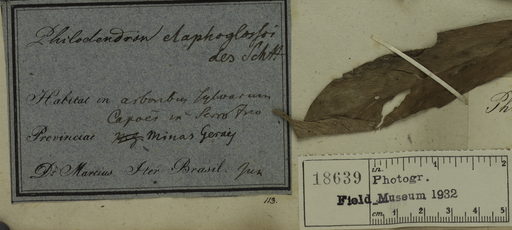 Philodendron elaphoglossoi
des Schtt
Habitat in arboribus sylvarum
Capoes in Serro Frio
Provinciae Minas Geraës
Dr Martius Iter Brasil. Jun
113.
Ph
18639
in.
1
2
Photogr.
Field Museum 1932
cm.
1
2
3
4
5